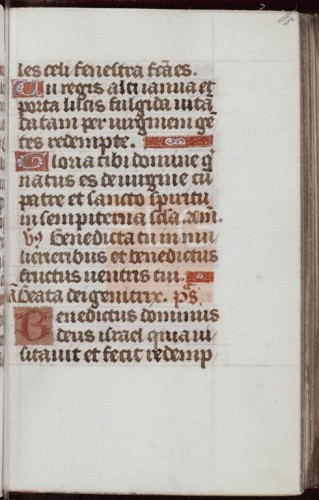 les celi fenestra fca es.
Tu regis alti ianua et
porta lucis fulgida uita
datam per uirginem ge
tes redempte.
Gloria tibi domine q
natus es de uirgine cu
patre et sancto spiritu
in sempiterna scla. am.
v Benedicta tu in mu
lieribus et benedictus
fructus uentris tui.
a Beata dei genitrix. ps
Benedictus dominus
deus israel quia ui
sitauit et fecit redemp